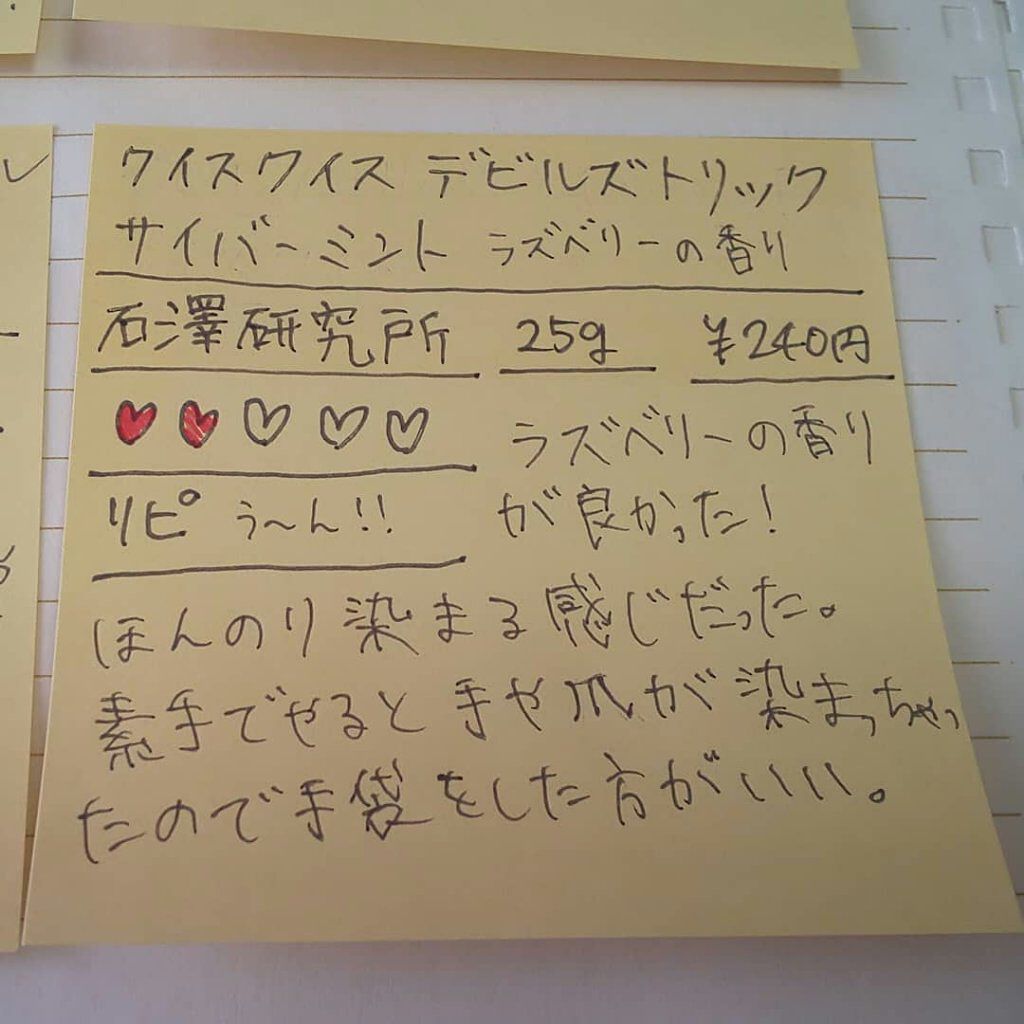 ワイスワイス デビルズトリック
サイバーミント ラズベリーの香り
石澤研究所 25g ¥240円
ラズベリーの香り
が良かった!
リピ う〜ん!!
ほんのり染まる感じだった。
素手でやると手や爪が染まっちゃっ
たので手袋をした方がいい。